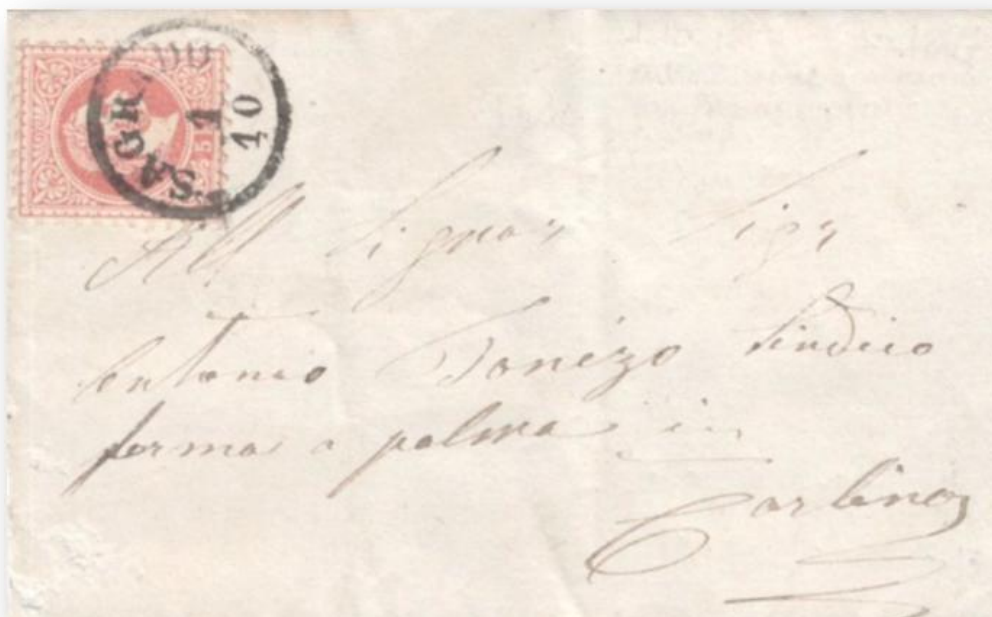 SAGRADO
1
10
5
All Signor Sigr
Antonio Tonizo Sindico
ferma a palma in
Carlino